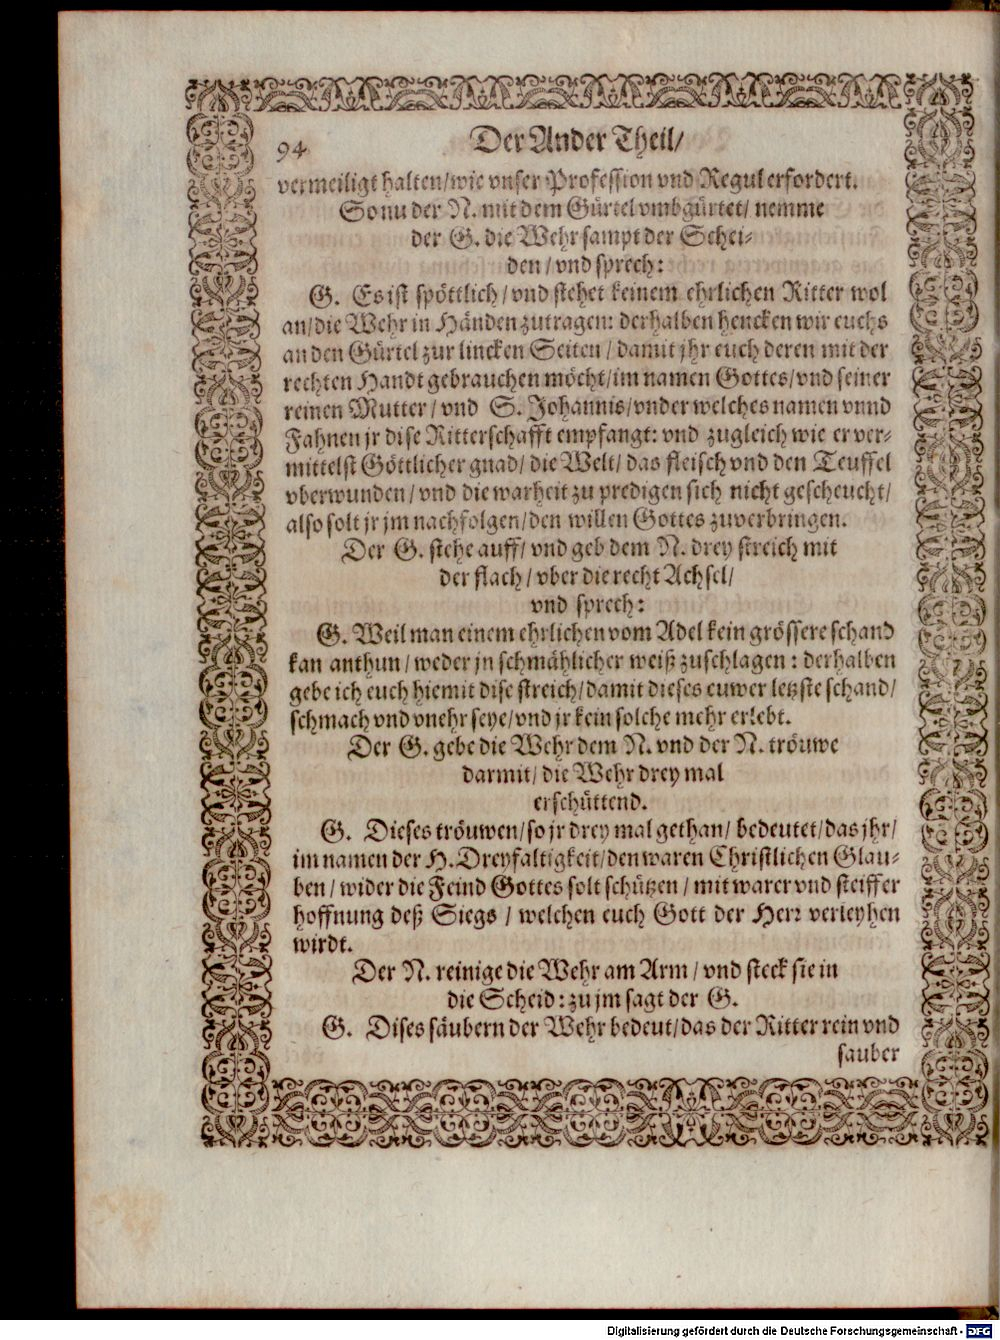 94
Der Ander Theil/
vermeiligt halten/wie vnser Profession vnd Regul erfordert.
So nu der N. mit dem Gürtel vmbgürtet/ nemme
der G. die Wehr sampt der Schei-
den/vnd sprech:
G. Es ist spöttlich/vnd stehet keinem ehrlichen Ritter wol
an/die Wehr in Händen zutragen: derhalben hencken wir euchs
an den Gürtel zur lincken Seiten/damit jhr euch deren mit der
rechten Handt gebrauchen möcht/im namen Gottes/vnd seiner
reinen Mutter/vnd S. Johannis/vnder welches namen vnnd
Fahnen jr dise Ritterschafft empfangt: vnd zugleich wie er ver-
mittelst Göttlicher gnad/die Welt/das fleisch vnd den Teuffel
vberwunden/vnd die warheit zu predigen sich nicht gescheucht/
also solt jr jm nachfolgen/den willen Gottes zuverbringen.
Der G. stehe auff/vnd geb dem N. drey streich mit
der flach/vber die recht Achsel/
vnd sprech:
G. Weil man einem ehrlichen vom Adel kein grössere schand
kan anthun/weder jn schmählicher weiß zuschlagen: derhalben
gebe ich euch hiemit dise streich/damit dieses euwer letzste schand/
schmach vnd vnehr seye/vnd jr kein solche mehr erlebt.
Der G. gebe die Wehr dem N. vnd der N. tröuwe
darmit/die Wehr drey mal
erschüttend.
G. Dieses tröuwen/so jr drey mal gethan/bedeutet/das jhr/
im namen der H. Dreyfaltigkeit/den waren Christlichen Glau-
ben/wider die Feind Gottes solt schützen/mit warer vnd steiffer
hoffnung deß Siegs/welchen euch Gott der Herr verleyhen
wirdt.
Der N. reinige die Wehr am Arm/vnd steck sie in
die Scheid: zu jm sagt der G.
G. Dises säubern der Wehr bedeut/das der Ritter rein vnd
sauber
Digitalisierung gefördert durch die Deutsche Forschungsgemeinschaft - DFG